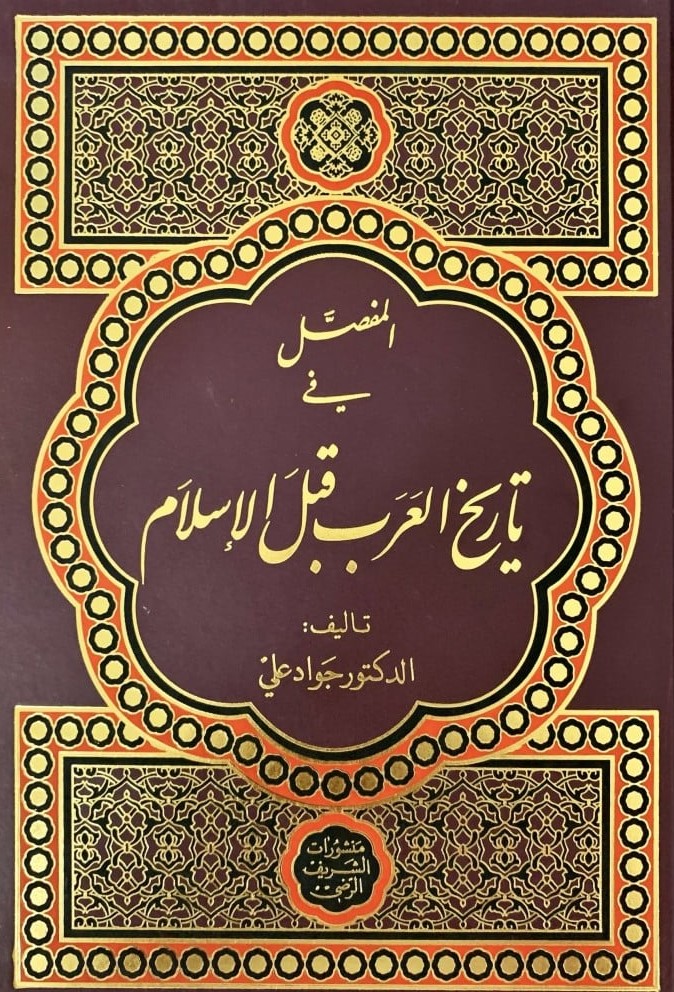 المفصَّل
في
تاريخ العَرَب قبلَ الإسلاَم
تاليف:
الدكتور جَواد عليْ
منشورات
الشريف
الرضيّ